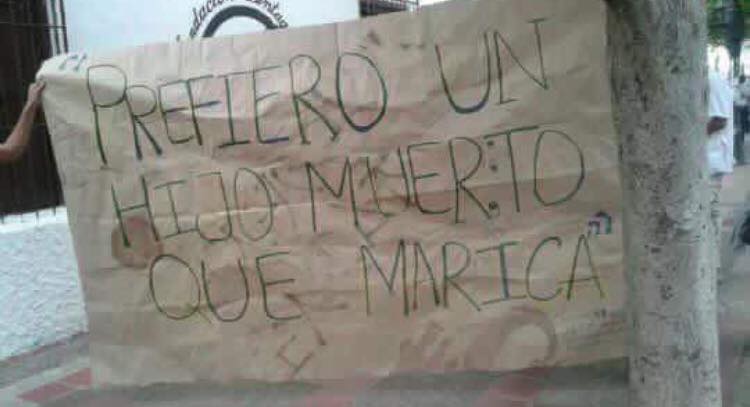 “PREFIERO UN
HIJO MUERTO
QUE MARICA”